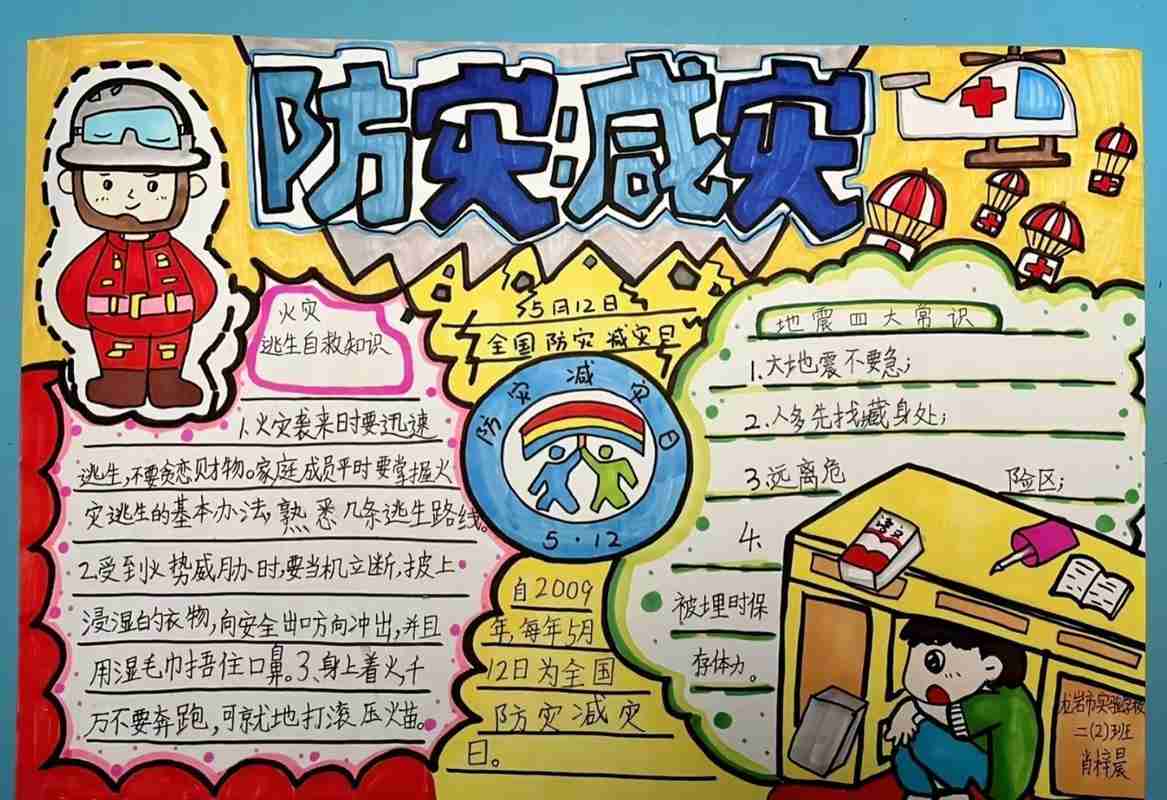 防灾减灾
火灾
逃生自救知识
1.火灾袭来时要迅速
逃生,不要贪恋财物。家庭成员平时要掌握火
灾逃生的基本办法,熟悉几条逃生路线。
2.受到火势威胁时,要当机立断,披上
浸湿的衣物,向安全出口方向冲出,并且
用湿毛巾捂住口鼻。3、身上着火,千
万不要奔跑,可就地打滚压火苗。
5月12日
全国防灾减灾日
防灾减灾日
5·12
自2009
年,每年5月
12日为全国
防灾减灾
日。
地震四大常识
1.大地震不要急;
2.人多先找藏身处;
3.远离危险区;
4.
被埋时保
存体力。
语文
龙岩市实验学校
二(2)班
肖梓晨